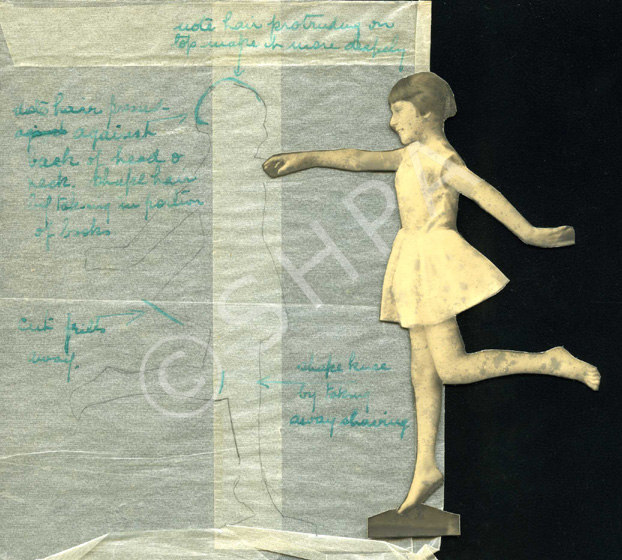 note hair protruding on
top make in more deeply
note hair pressed
against
back of head &
neck. Shape hair
by taking in portion
of books
Cut frills
away.
shape knee
by takin
away shaving
© SHPA